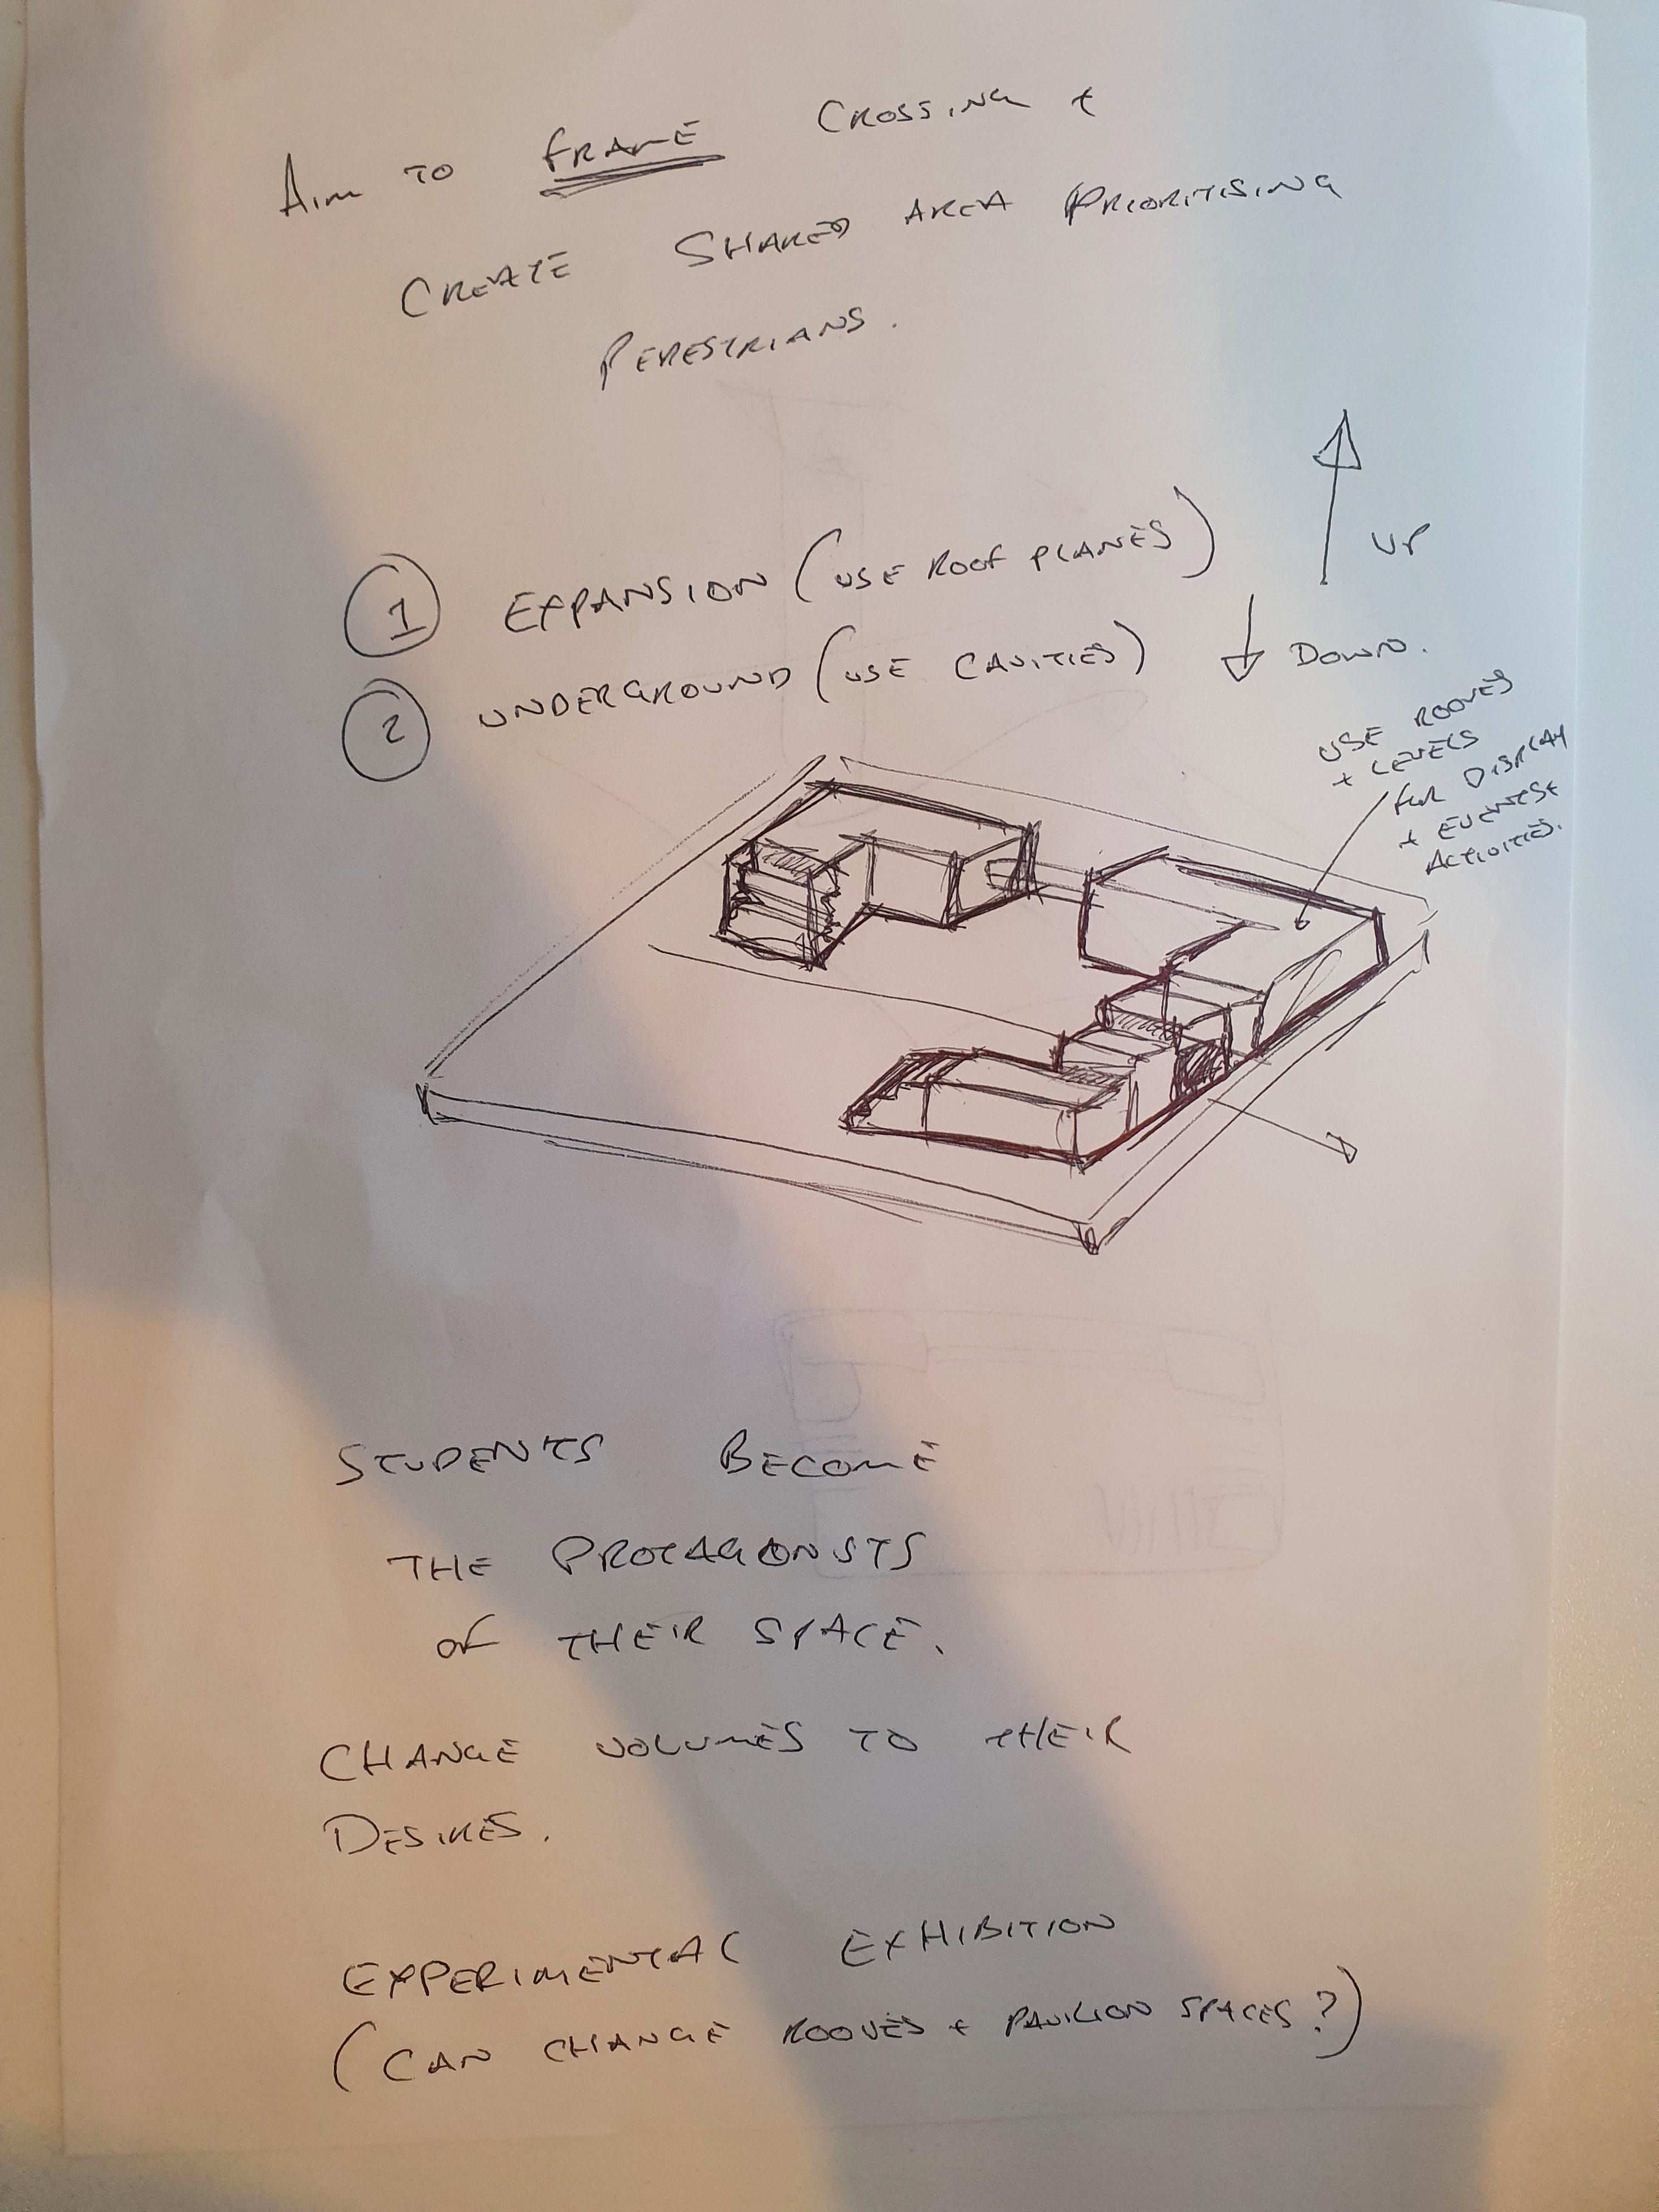 AIM TO FRAME CROSSING +
CREATE SHARED AREA PRIORITISING
PEDESTRIANS.
UP
1 EXPANSION (USE ROOF PLANES)
2 UNDERGROUND (USE CAVITIES)
DOWN.
USE ROOVES
+ LEVELS
FOR DISPLAY
+ EVENTS +
ACTIVITIES.
STUDENTS BECOME
THE PROTAGONSTS
OF THEIR SPACE.
CHANGE VOLUMES TO THEIR
DESIRES.
EXPERIMENTAL EXHIBITION
(CAN CHANGE ROOVES + PAVILION SPACES?)